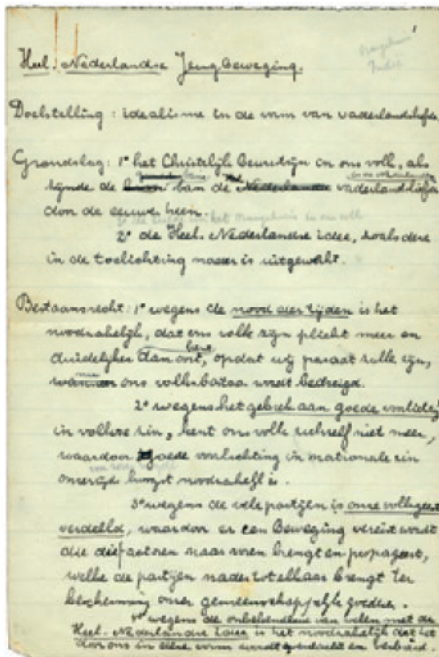 1
Heel-Nederlandse Jeugbeweging.
Doelstelling: idealisme in de vorm van vaderlandsliefde
Grondslag: 1° het Christelijk Bewustzijn in ons volk, als
zijnde de ban de vaderlandsliefde
door de eeuwen heen.
2° de Heel-Nederlandse idee, zoals deze
in de toelichting nader is uitgewerkt.
Bestaansrecht: 1° wegens de nood der tijden is het
noodzakelijk, dat ons volk zijn plicht meer en
duidelijker dan ooit, opdat wij paraat zulle zijn,
ons volksbestaan wordt bedreigd.
2° wegens het gebrek aan goede voorlichting
in volkse zin, kent ons volk zichzelf niet meer,
waardoor goede voorlichting in nationale zin
hoogst noodzakelijk is.
3° wegens de vele partijen is onze volksgeest
verdeeld, waardoor er een Beweging vereist wordt
die die factoren naar voren brengt en propageert,
welke de partijen nader tot elkaar brengt ter
bescherming onzer gemeenschappelijke goederen.
4° wegens de onbekendheid van velen met de
Heel-Nederlandse idee is het noodzakelijk dat het
door ons in elke vorm wordt en verbreid.